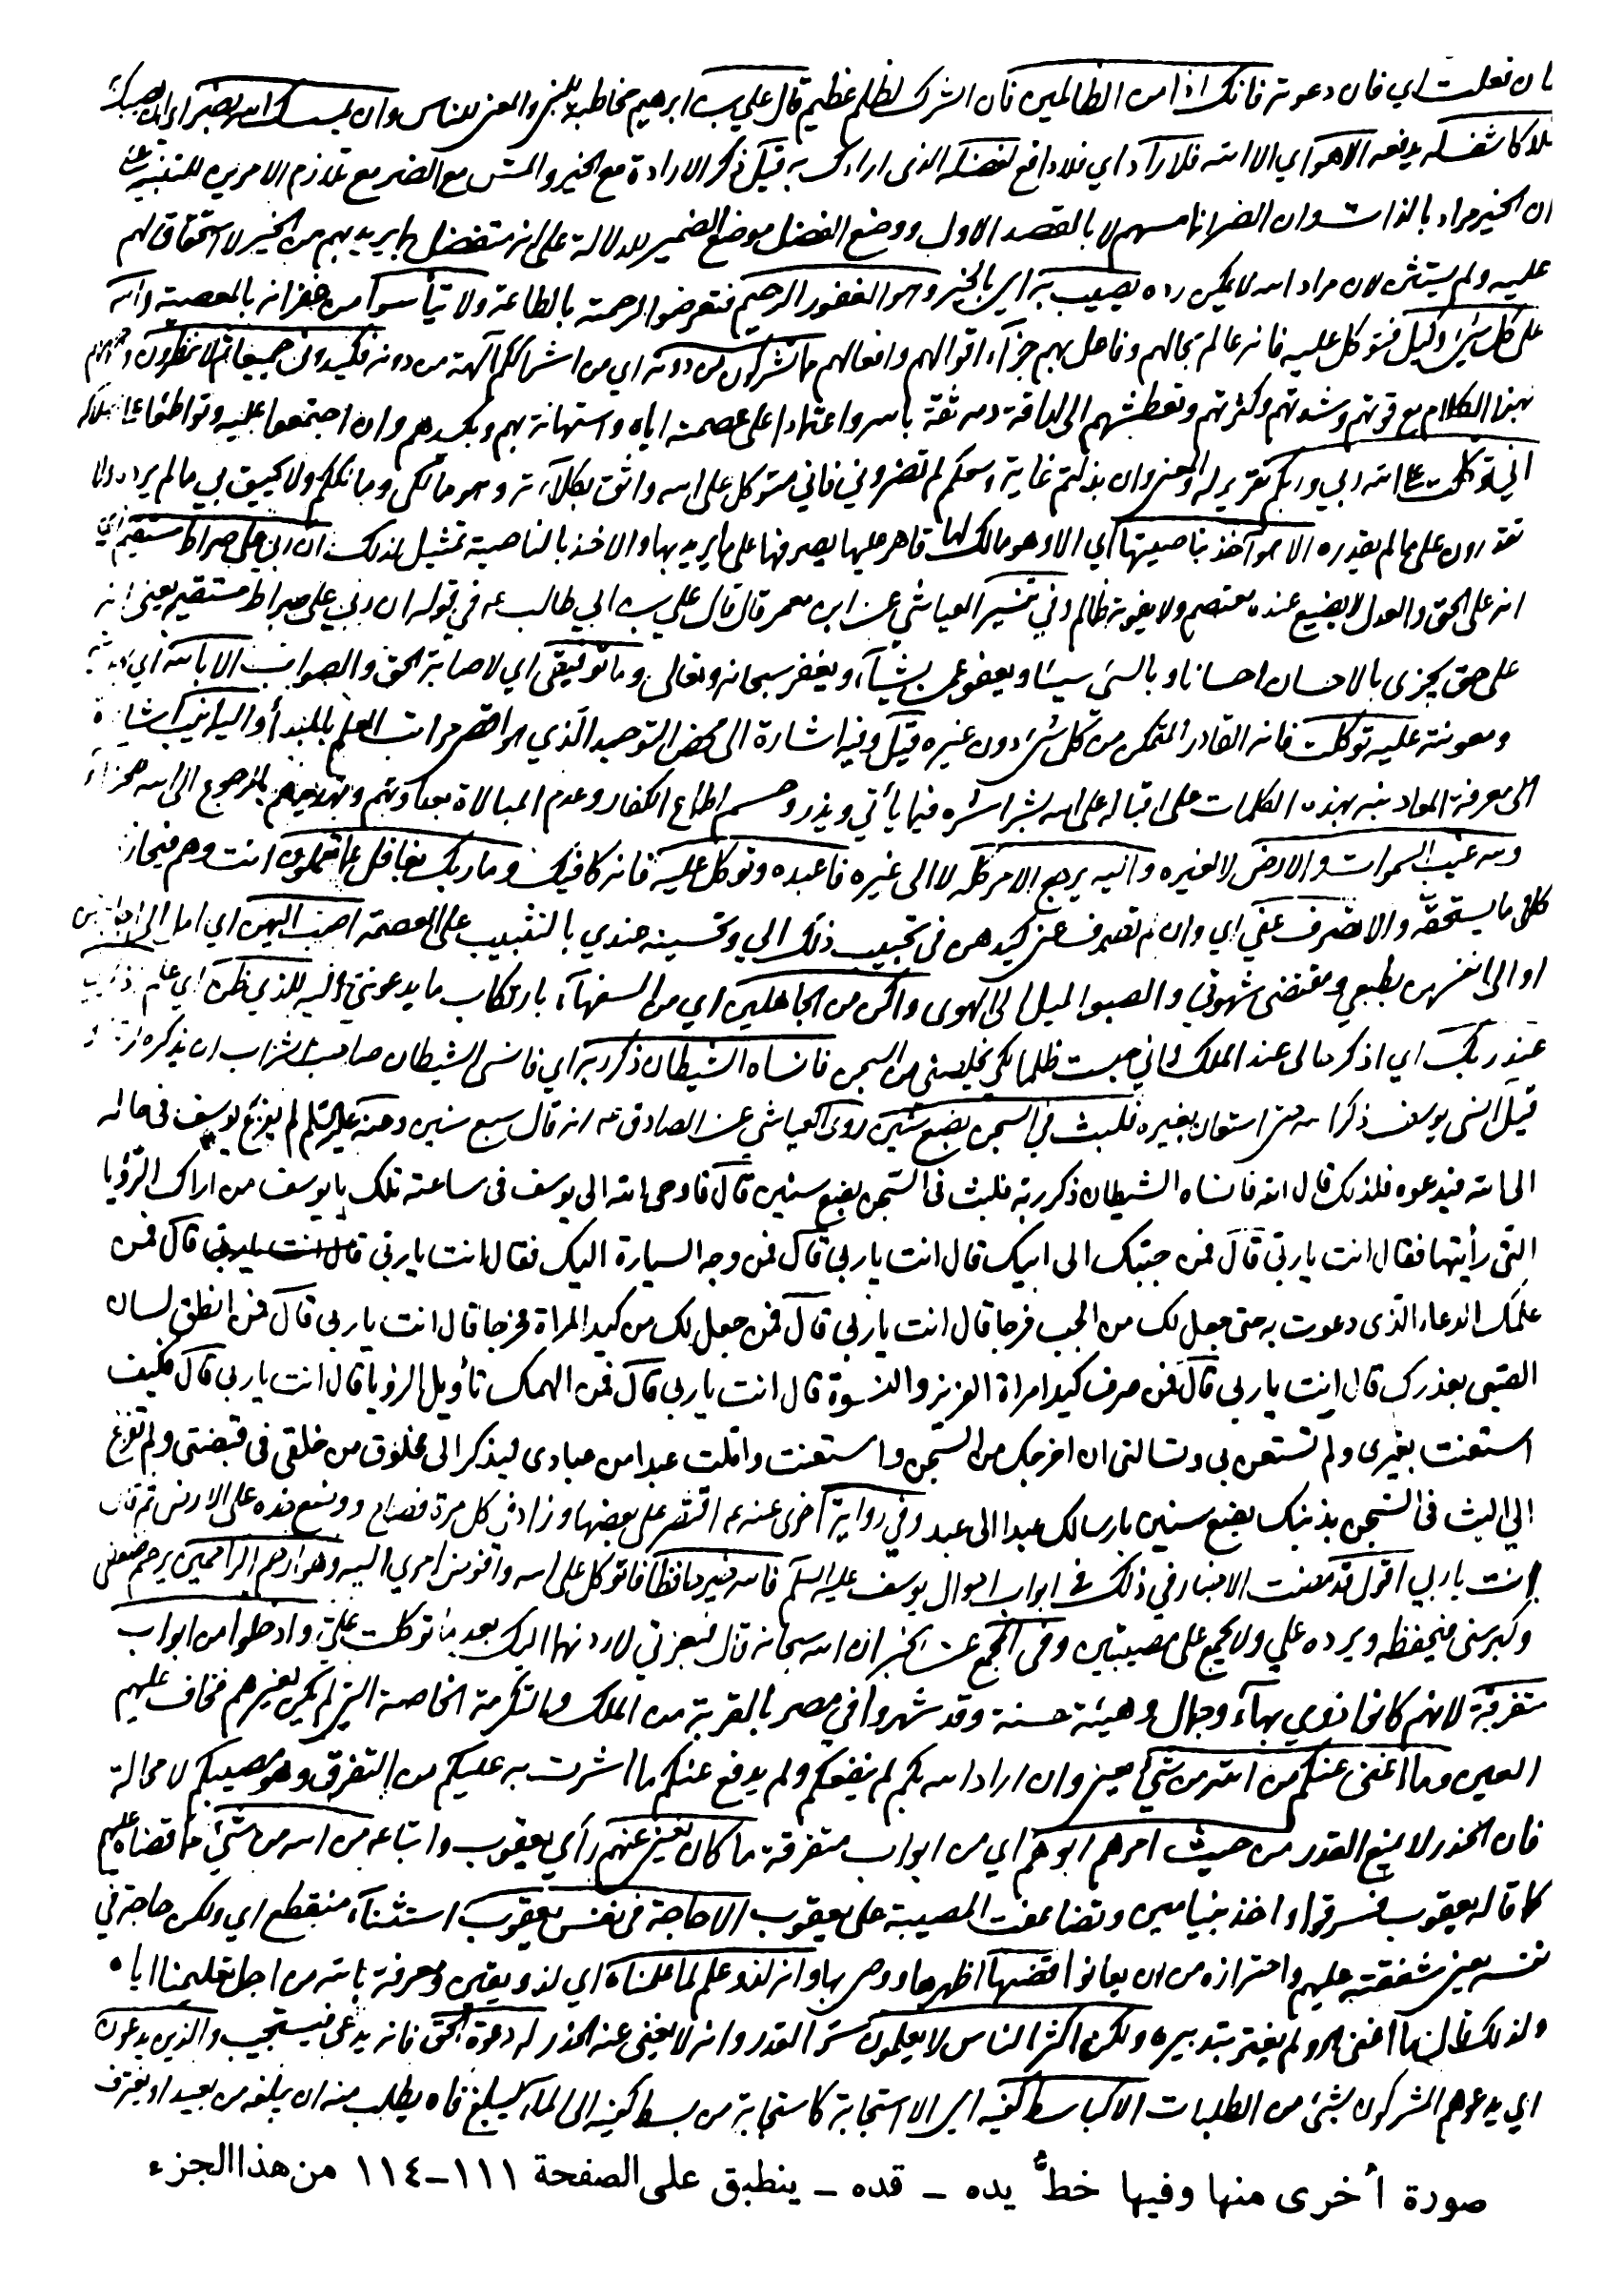 فان فعلت اي فان دعوته فانك اذا من الظالمين فان الشرك لظلم عظيم قال علي بن ابرهيم مخاطبة للنبي والمعنى للناس وان يمسسك الله بضر اي ان يصبك
فلا كاشف له يدفعه الا هو اي الا الله فلا راد اي فلا دافع لفضله الذى ارادك به قيل ذكر الارادة مع الخير والمس مع الضر مع تلازم الامرين للتنبيه على
ان الخير مراد بالذات وان الضر انما مسهم لا بالقصد الاول ووضع الفضل موضع الضمير للدلالة على انه متفضل بما يريد بهم من الخير لا استحقاق لهم
عليه ولم يستثن لان مراد الله لا يمكن رده يصيب به اي بالخير وهو الغفور الرحيم فتعرضوا لرحمته بالطاعة ولا تيأسوا من غفرانه بالمعصية والله
على كل شئ وكيل فتوكل عليه فانه عالم بحالهم وفاعل بهم جزآء اقوالهم وافعالهم مما تشركون من دونه اي من اشراككم آلهة من دونه فكيدوني جميعا ثم لا تنظرون
بهذا الكلام مع قوتهم وشدتهم وكثرتهم وتعطشهم الى اراقة دمه ثقة بالله واعتمادا على عصمته اياه واستهانة بهم وبكيدهم وان اجتمعوا عليه وتواطئوا على اهلاكه
اني توكلت على الله ربي وربكم تقرير له والمعنى وان بذلتم غاية وسعكم لم تضروني فاني متوكل على الله واثق بكلآءته وهو مالكي ومالككم ولا يحيق بي ما لم يرده ولا
تقدرون على ما لم يقدره الا هو آخذ بناصيتها اي الا وهو مالك لها قاهر عليها يصرفها على ما يريد بها والاخذ بالناصية تمثيل لذلك ان ربي على صراط مستقيم اي
انه على الحق والعدل لا يضيع عنده معتصم ولا يفوته ظالم وفي تفسير العياشي عن ابن معمر قال قال علي بن ابي طالب ع في قوله ان ربي على صراط مستقيم يعنى انه
على حق يجزى بالاحسان احسانا وبالسئ سيئا ويعفو عمن يشآء ويغفر سبحانه وتعالى وما توفيقي اي لاصابة الحق والصواب الا بالله اي
ومعونته عليه توكلت فانه القادر المتمكن من كل شئ دون غيره قيل وفيه اشارة الى محض التوحيد الذي هو اقصى مراتب العلم بالمبدأ واليه انيب اشارة
الى معرفة المعاد نبه بهذه الكلمات على اقباله على الله بشراشره فيما يأتي ويذر وحسم اطماع الكفار وعدم المبالاة بعداوتهم وتهديدهم بالرجوع الى الله للجزآء
ولله غيب السموات والارض لا لغيره واليه يرجع الامر كله لا الى غيره فاعبده وتوكل عليه فانه كافيك وما ربك بغافل عما تعملون انت وهم فيجازي
كلا ما يستحقه والا تصرف عني اي وان لم تصرف عني كيدهن في تحبيب ذلك الي وتحسينه عندي بالتثبيت على العصمة اصب اليهن اي امل الى اجابتهن
او الى انفسهن بطبعي ومقتضى شهوتي والصبو الميل الى الهوى واكن من الجاهلين اي من السفهآء بارتكاب ما يدعونني اليه للذي ظن اي علم
عند ربك اي اذكر حالي عند الملك واني حبست ظلما لكي يخلصني من السجن فانساه الشيطان ذكر ربه اي فانسى الشيطان صاحب الشراب ان يذكره لربه
قيل انسى يوسف ذكر الله حتى استعان بغيره فلبث في السجن بضع سنين روى العياشي عن الصادق ع انه قال سبع سنين وعنه عليه السلم لم يفزع يوسف في حاله
الى الله فيدعوه فلذلك قال الله فانساه الشيطان ذكر ربه فلبث في السجن بضع سنين قال فاوحى الله الى يوسف في ساعته تلك يا يوسف من اراك الرؤيا
التي رأيتها فقال انت يا ربي قال فمن حببك الى ابيك قال انت يا ربي قال فمن وجه السيارة اليك فقال انت يا ربي قال انت يا ربي قال فمن
علمك الدعاء الذى دعوت به حتى جعل لك من الجب فرجا قال انت يا ربي قال فمن جعل لك من كيد المراة مخرجا قال انت يا ربي قال فمن انطق لسان
الصبي بعذرك قال انت يا ربي قال فمن صرف كيد امراة العزيز والنسوة قال انت يا ربي قال فمن الهمك تأويل الرؤيا قال انت يا ربي قال فكيف
استعنت بغيرى ولم تستعن بي وتسالني ان اخرجك من السجن واستعنت واملت عبدا من عبادى ليذكرك الى مخلوق من خلقى فى قبضتى ولم تفزع
الي البث في السجن بذنبك بضع سنين بارسالك عبدا الى عبد وفي رواية اخرى عنه ع اقتصر على بعضها وزاد في كل مرة فصاح ووضع خده على الارض ثم قال
انت يا ربي اقول قد مضت الاخبار في ذلك في ابواب احوال يوسف عليه السلم فالله خير حافظا فاتوكل على الله وافوض امري اليه وهو ارحم الراحمين يرحم ضعفى
وكبر سنى فيحفظه ويرده علي ولا يجمع على مصيبتين وفى المجمع عن الخبر ان الله سبحانه قال فبعزتي لاردنهما اليك بعد ما توكلت علي وادخلوا من ابواب
متفرقة لانهم كانوا ذوي بهآء وجمال وهيئة حسنة وقد شهروا في مصر بالقربة من الملك والتكرمة الخاصة التي لم يكن لغيرهم فخاف عليهم
العين وما اغنى عنكم من الله من شئ يعني وان اراد الله بكم لم ينفعكم ولم يدفع عنكم ما اشرت به عليكم من التفرق وهو مصيبكم لا محالة
فان الحذر لا يمنع القدر من حيث امرهم ابوهم اي من ابواب متفرقة ما كان يغني عنهم رأي يعقوب واتباعه من الله من شئ مما قضاه عليهم
كما قاله يعقوب فسرقوا واخذ بنيامين وتضاعفت المصيبة على يعقوب الا حاجة فى نفس يعقوب استثنآء منقطع اي ولكن حاجة في
نفسه يعني شفقته عليهم واحترازه من ان يعانوا قضيها اظهرها ووصى بها وانه لذو علم لما علمناه اي لذو يقين ومعرفة بالله من اجل تعليمنا اياه
ولذلك قال ما اغني ولم يغتر بتدبيره ولكن اكثر الناس لا يعلمون سر القدر وانه لا يغنى عنه الحذر له دعوة الحق فانه يدعى فيستجيب والذين يدعون
اي يدعوهم المشركون بشئ من الطلبات الا كباسط كفيه اي الا استجابة كاستجابة من بسط كفيه الى الماء ليبلغ فاه يطلب منه ان يبلغه من بعيد او يغترف
صورة أخرى منها وفيها خطُّ يده - قده - ينطبق على الصفحة ١١١-١١٤ من هذا الجزء